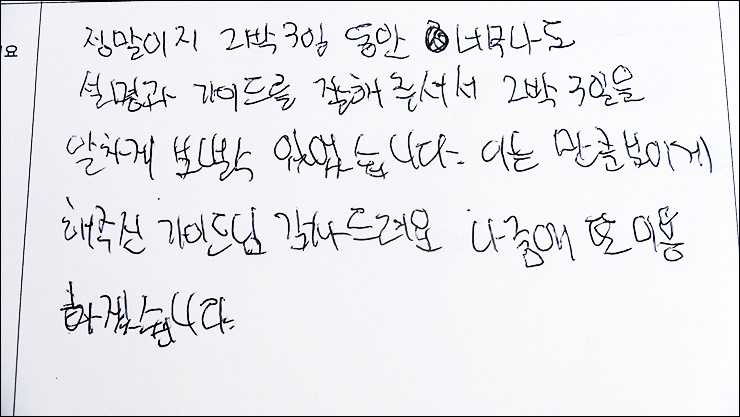 정말이지 2박3일 동안 너무나도
요
설명과 가이드를 잘해주셔서 2박3일을
알차게 보낼수 있었습니다. 아는 만큼보이게
해주신 가이드님 감사드려요 나중에 또 이용
하겠습니다.